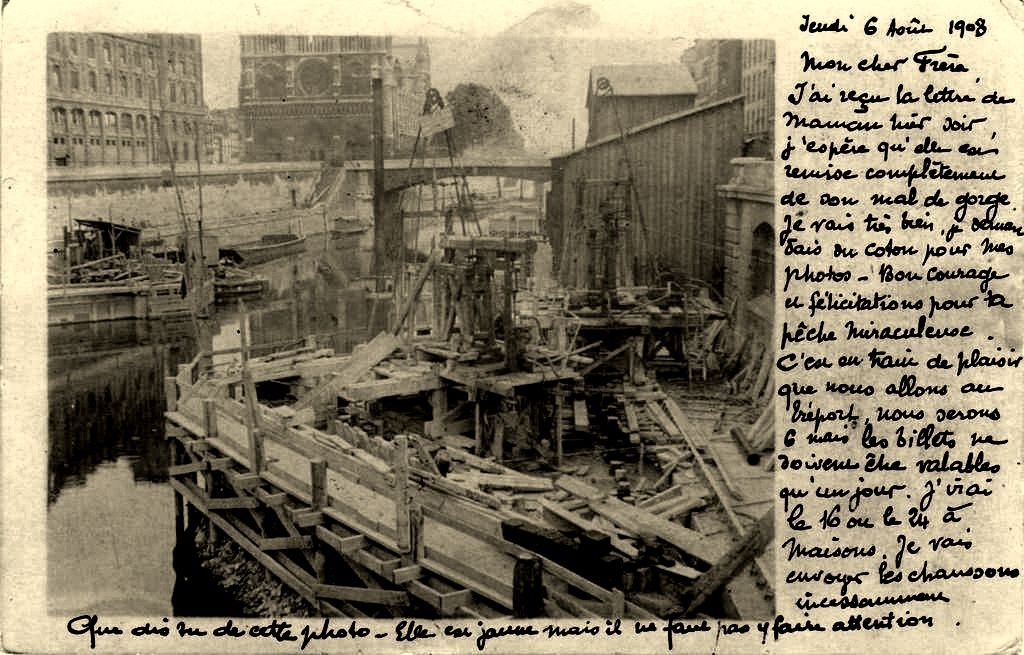 Jeudi 6 Août 1908
Mon cher Frère,
J'ai reçu la lettre de
Maman hier soir,
j'espère qu'elle est
remise complètement
de son mal de gorge.
Je vais très bien, je deman
dais du coton pour mes
photos - Bon courage
et félicitations pour ta
pêche miraculeuse.
C'est en train de plaisir
que nous allons au
Tréport, nous serons
6 mais les billets ne
doivent être valables
qu'un jour. J'irai
le 16 ou le 24 à
Maisons. Je vais
envoyer les chaussons
incessamment
Que dis tu de cette photo - Elle est jaune mais il ne faut pas y faire attention.